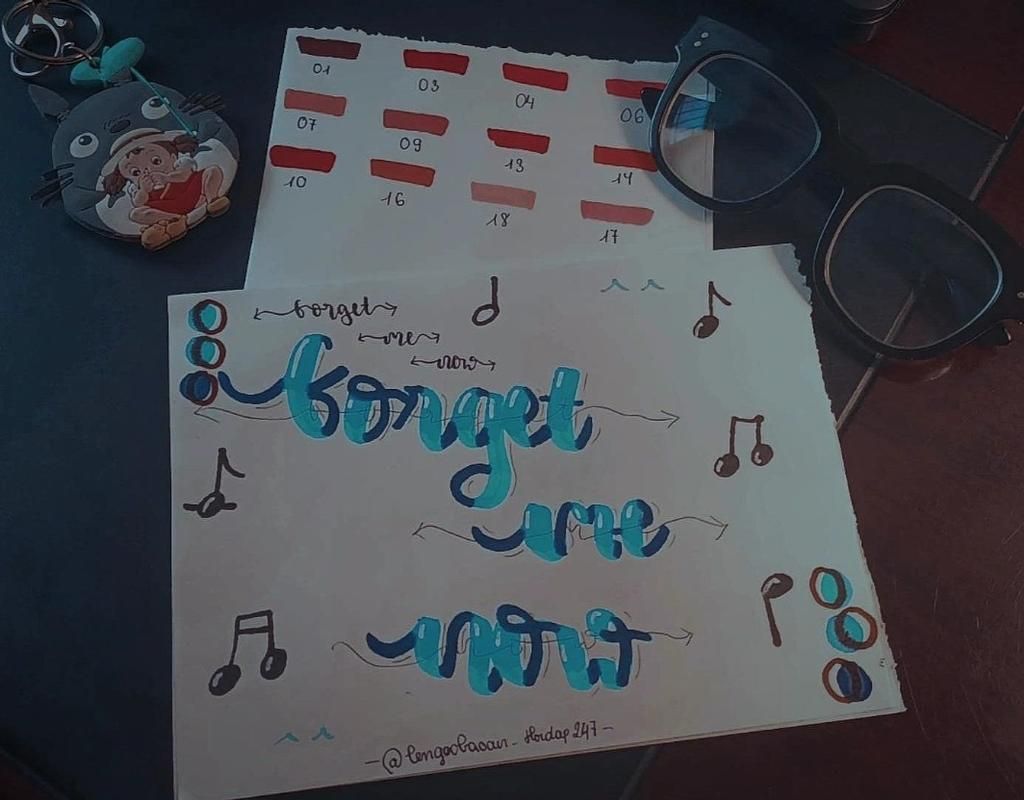 01 03 04 06
07 09 13 14
10 16 18 17
forget
me
now
forget
me
now